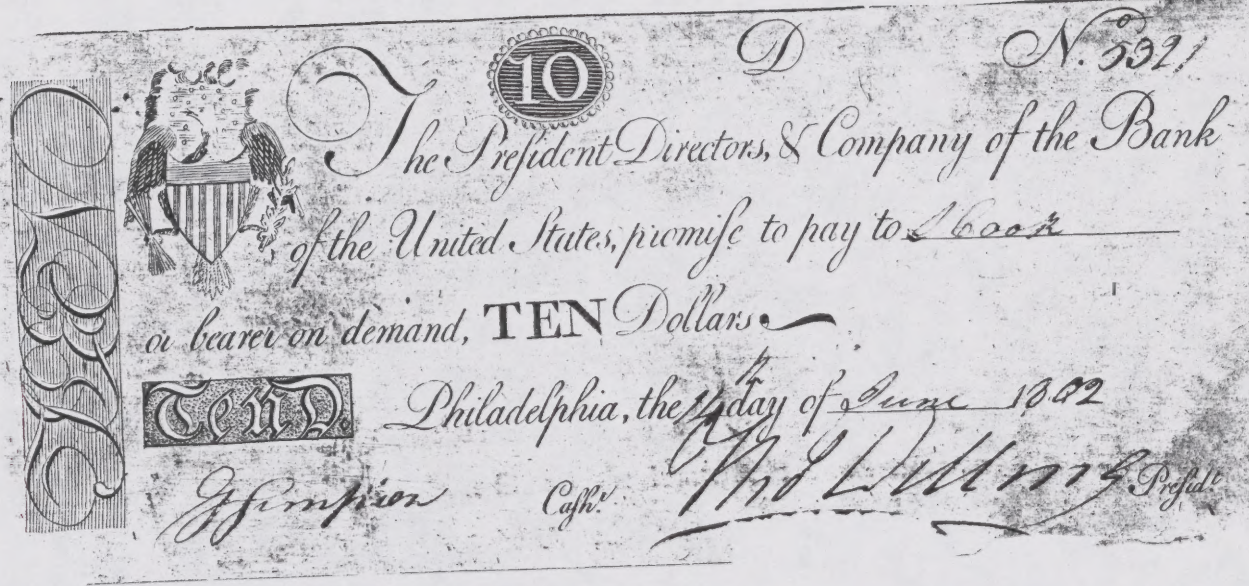 10 D N.º 5321
The Preſident Directors, & Company of the Bank
of the United States, promiſe to pay to Cook
or bearer on demand, TEN Dollars.
TenD. Philadelphia, the day of June 1802
G Simpson Caſhr. Tho Willing Preſidt.